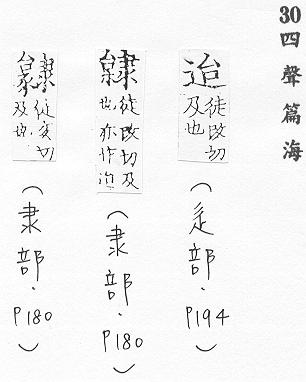 30 四聲篇海
迨
徒改切
及也
(辵部.P194)
徒改切及
也亦作迨
(隶部.P180)
徒亥切
及也
(隶部.P180)